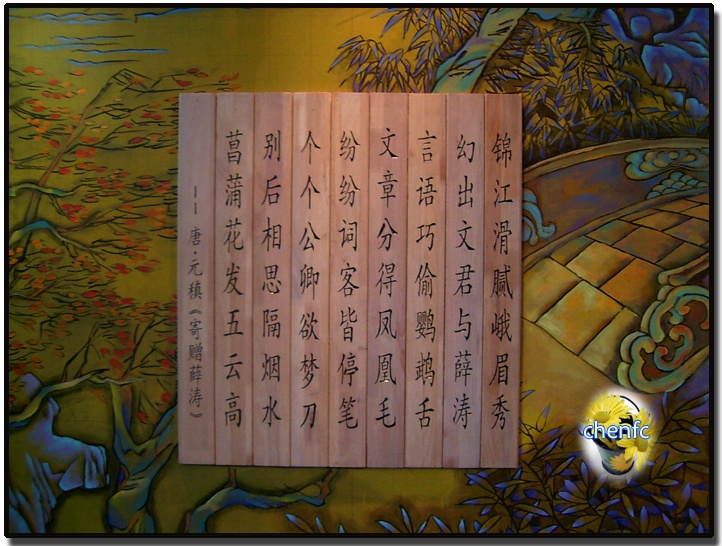 锦江滑腻峨眉秀
幻出文君与薛涛
言语巧偷鹦鹉舌
文章分得凤凰毛
纷纷词客皆停笔
个个公卿欲梦刀
别后相思隔烟水
菖蒲花发五云高
——唐·元稹《寄赠薛涛》
chenfc